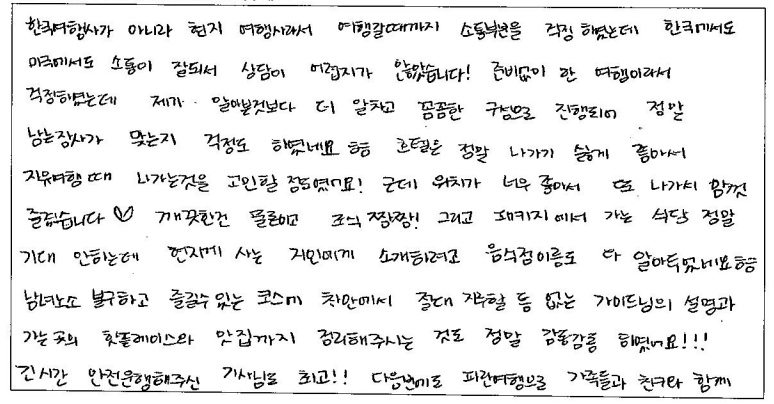 한국여행사가 아니라 현지 여행사라서 여행갈때까지 소통부분을 걱정 하였는데 한국에서도
미국에서도 소통이 잘되서 상담이 어렵지가 않았습니다! 준비없이 한 여행이라서
걱정하였는데 제가 알아본것보다 더 알차고 꼼꼼한 구성으로 진행되어 정말
남는장사가 맞는지 걱정도 하였네요 ㅎㅎ 호텔은 정말 나가기 싫게 좋아서
자유여행 때 나가는것을 고민할 정도였어요! 근데 위치가 너무 좋아서 또 나가서 맘껏
즐겼습니다 ♡ 깨끗한건 물론이고 조식 짱짱! 그리고 패키지에서 가는 식당 정말
기대 안하는데 현지에 사는 지인에게 소개하려고 음식점이름도 다 알아두었네요 ㅎㅎ
남녀노소 불구하고 즐길수 있는 코스에 차안에서 절대 지루할 틈 없는 가이드님의 설명과
가는 곳의 핫플레이스와 맛집까지 정리해주시는 것도 정말 감동감동 하였어요!!!
긴시간 안전운행해주신 기사님도 최고!! 다음번에도 파란여행으로 가족들과 친구와 함께